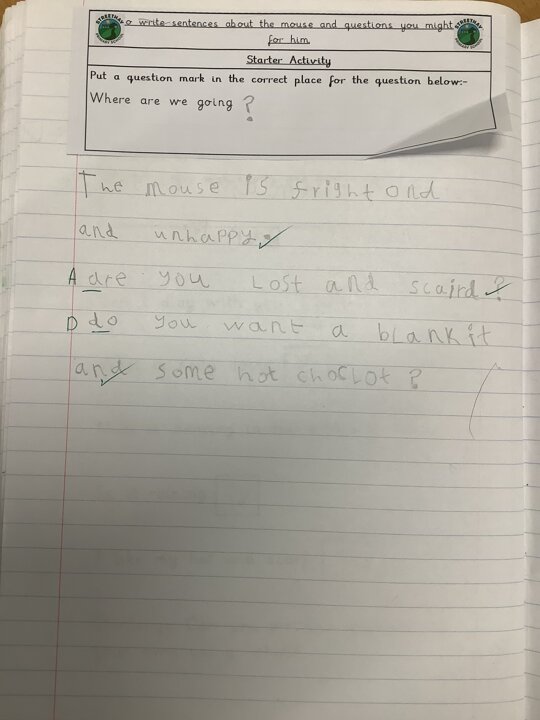 o write sentences about the mouse and questions you might
for him
Starter Activity
Put a question mark in the correct place for the question below:-
Where are we going ?
The mouse is frightond
and unhappy.
A are you Lost and scaird?
D do you want a blankit
and some hot choclot?